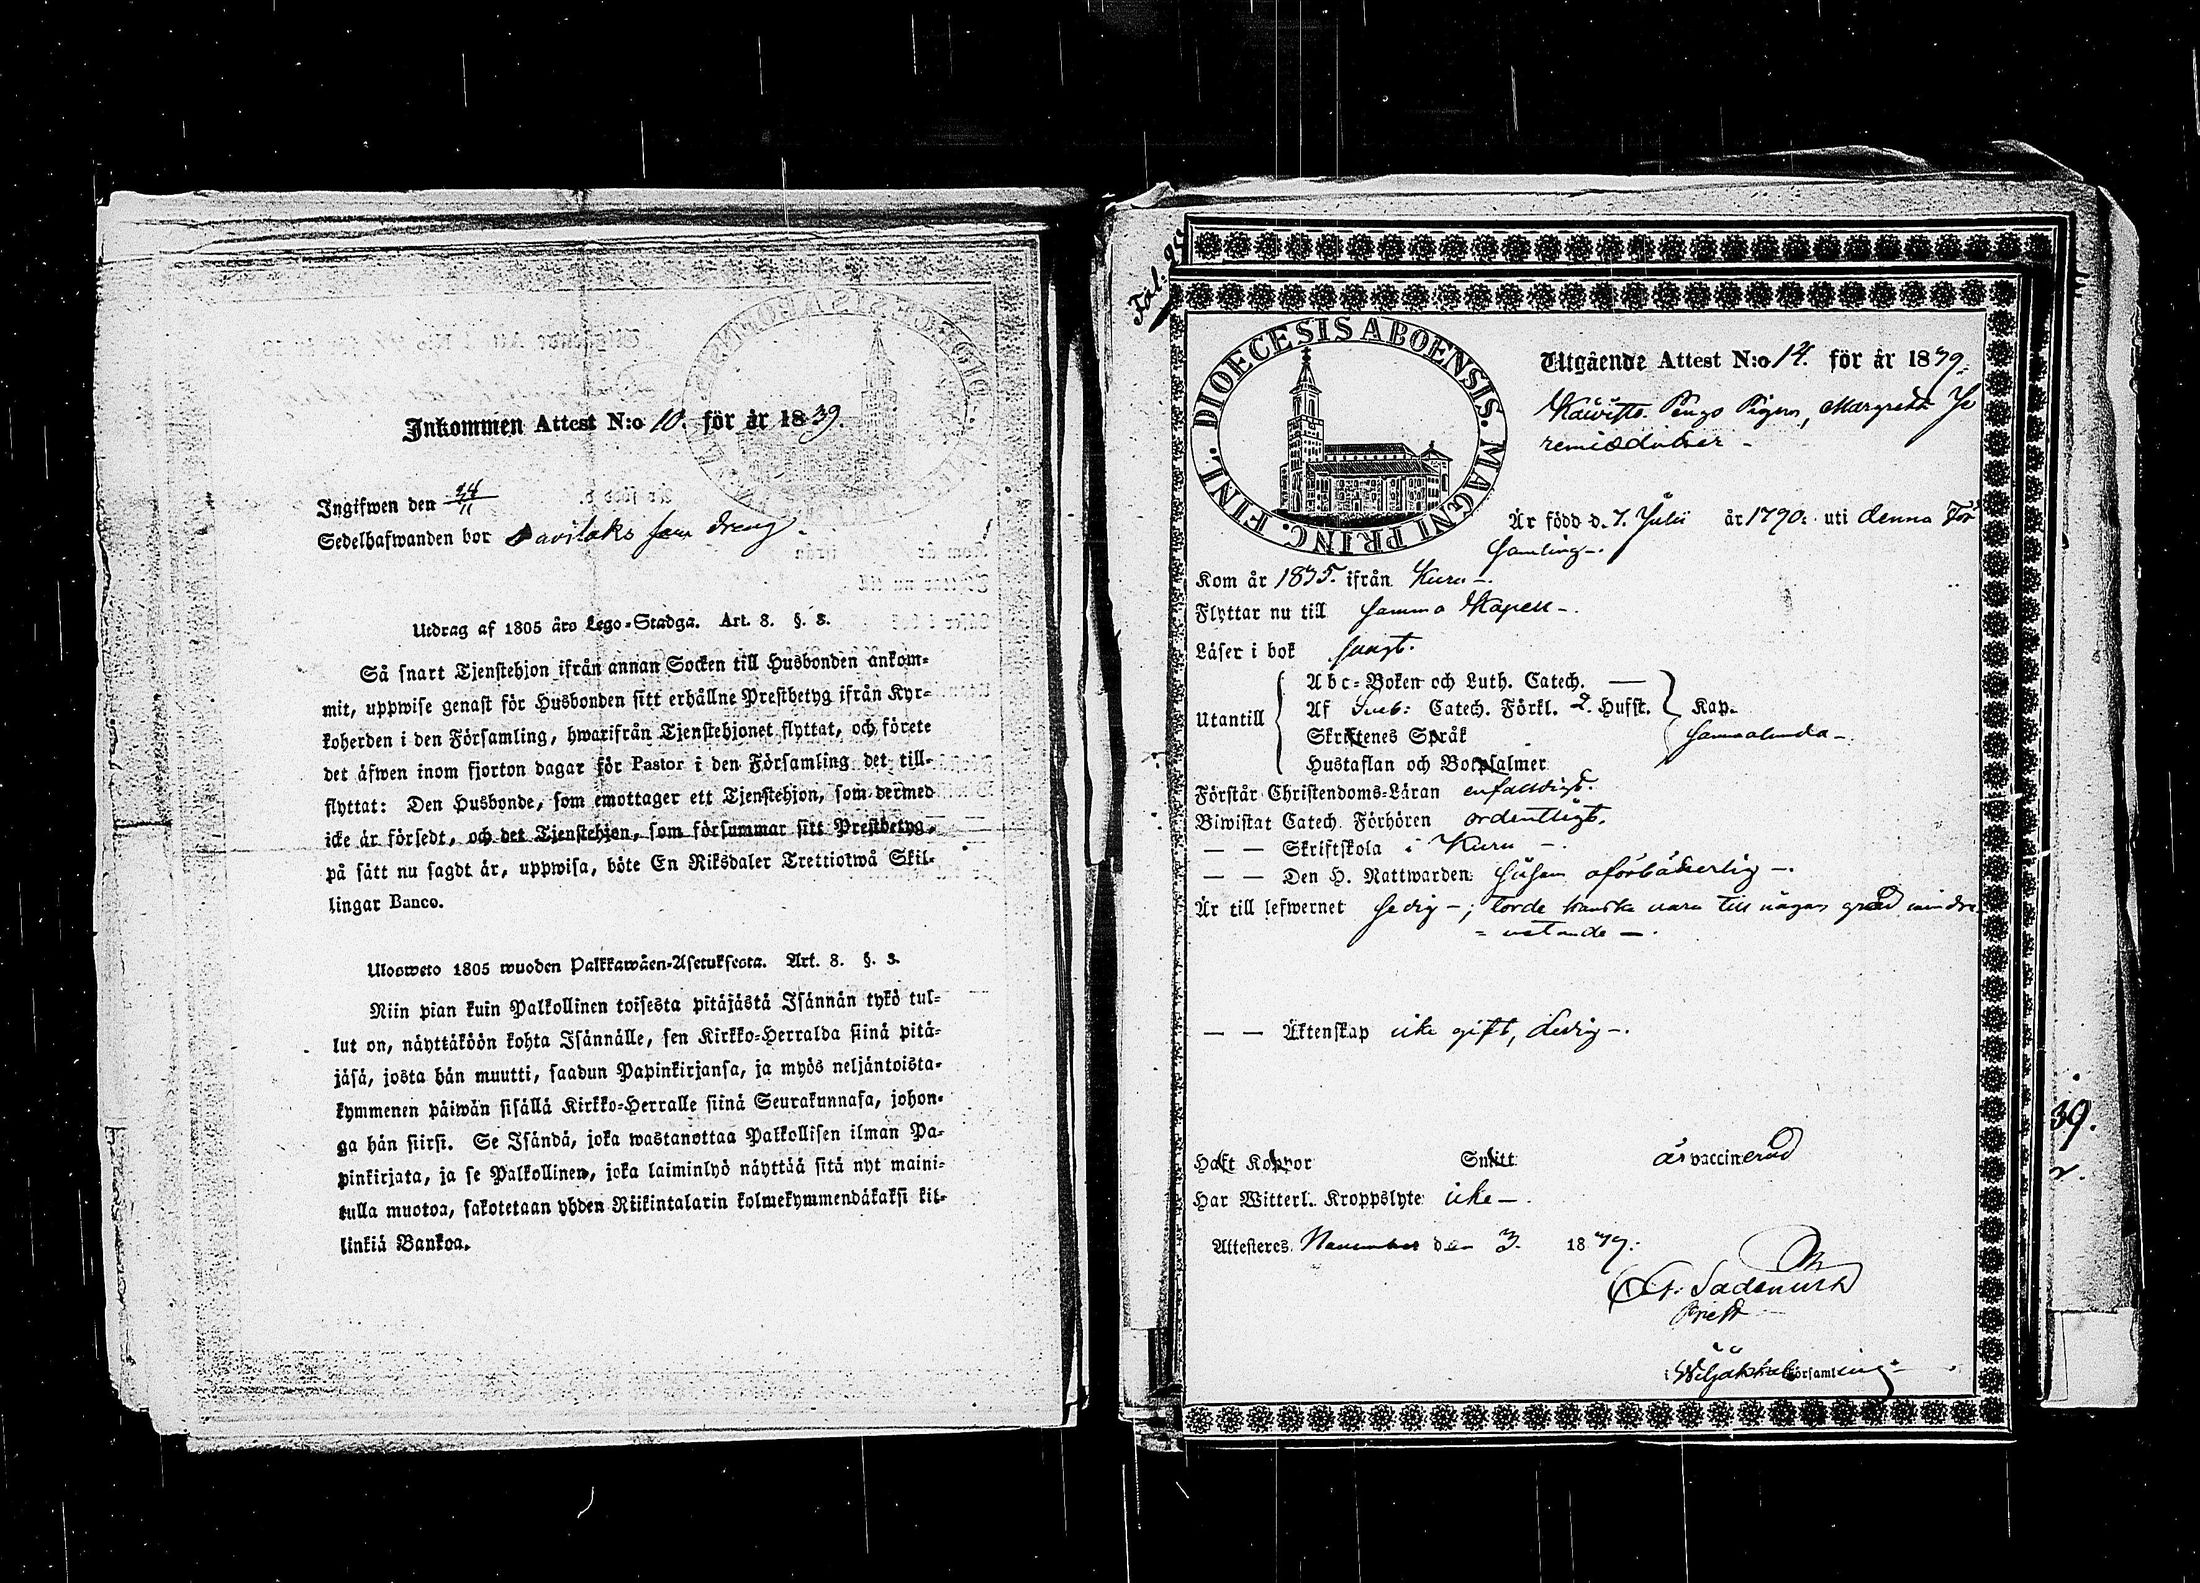 Inkommen Attest N:o 10. för år 1839.
Ingifwen den 24/11
Sedelhafwanden bor Davilaks som dreng.
Utdrag af 1805 års Lego-Stadga. Art. 8. §. 3.
Så snart Tjenstehjon ifrån annan Socken till Husbonden ankom-
mit, uppwise genast för Husbonden sitt erhållne Prestbetyg ifrån Kyr-
koherden i den Församling, hwarifrån Tjenstehjonet flyttat, och förete
det äfwen inom fjorton dagar för Pastor i den Församling det till-
flyttat: Den Husbonde, som emottager ett Tjenstehjon, som dermed
icke är försedt, och det Tjenstehjon, som försummar sitt Prestbetyg,
på sätt nu sagdt är, uppwisa, böte En Riksdaler Trettiotwå Skil-
lingar Banco.
Ulosweto 1805 wuoden Palkkawäen-Asetuksesta. Art. 8. §. 3.
Niin pian kuin Palkollinen toisesta pitäjästä Isännän tykö tul-
lut on, näyttäköön kohta Isännälle, sen Kirkko-Herralda siinä pitä-
jäsä, josta hän muutti, saadun Papinkirjansa, ja myös neljäntoista-
kymmenen päiwän sisällä Kirkko-Herralle siinä Seurakunnasa, johon-
ga hän siirsi. Se Isändä, joka wastanottaa Palkollisen ilman Pa-
pinkirjata, ja se Palkollinen, joka laiminlyö näyttää sitä nyt maini-
tulla muotoa, sakotetaan yhden Riikintalarin kolmekymmendäkaksi kil-
linkiä Bankoa.
Fol. 25
DIOECESIS ABOENSIS. MAGNI PRINC. FINL.
Utgående Attest N:o 14. för år 1839.
Pigan, Margreta Je
remiædotter -
Är född d. 7. Julii år 1790. uti denna För
samling -.
Kom år 1835. ifrån Kuru -.
Flyttar nu till samma Kapell -.
Läser i bok svagt.
Utantill
Abc-Boken och Luth. Catech. —
Af Sveb: Catech. Förkl. 2. Hufst.
Skriftenes Språk
Hustaflan och Botpsalmer
Kap.
sammalunda -.
Förstår Christendoms-Läran enfaldigt.
Biwistat Catech. Förhören ordentligt.
— — Skriftskola i Kuru -.
— — Den H. Nattwarden oförhinderlig -.
Är till lefwernet sedig -; torde kanske vara till någon grad mindre
= vetande -.
— — Äktenskap icke gift, ledig -.
Haft Koppor Smitt är vaccinerad
Har Witterl. Kroppslyte icke -.
Attesteras November den 3. 1839.
Prest
i Wiljakkala församling -
39.